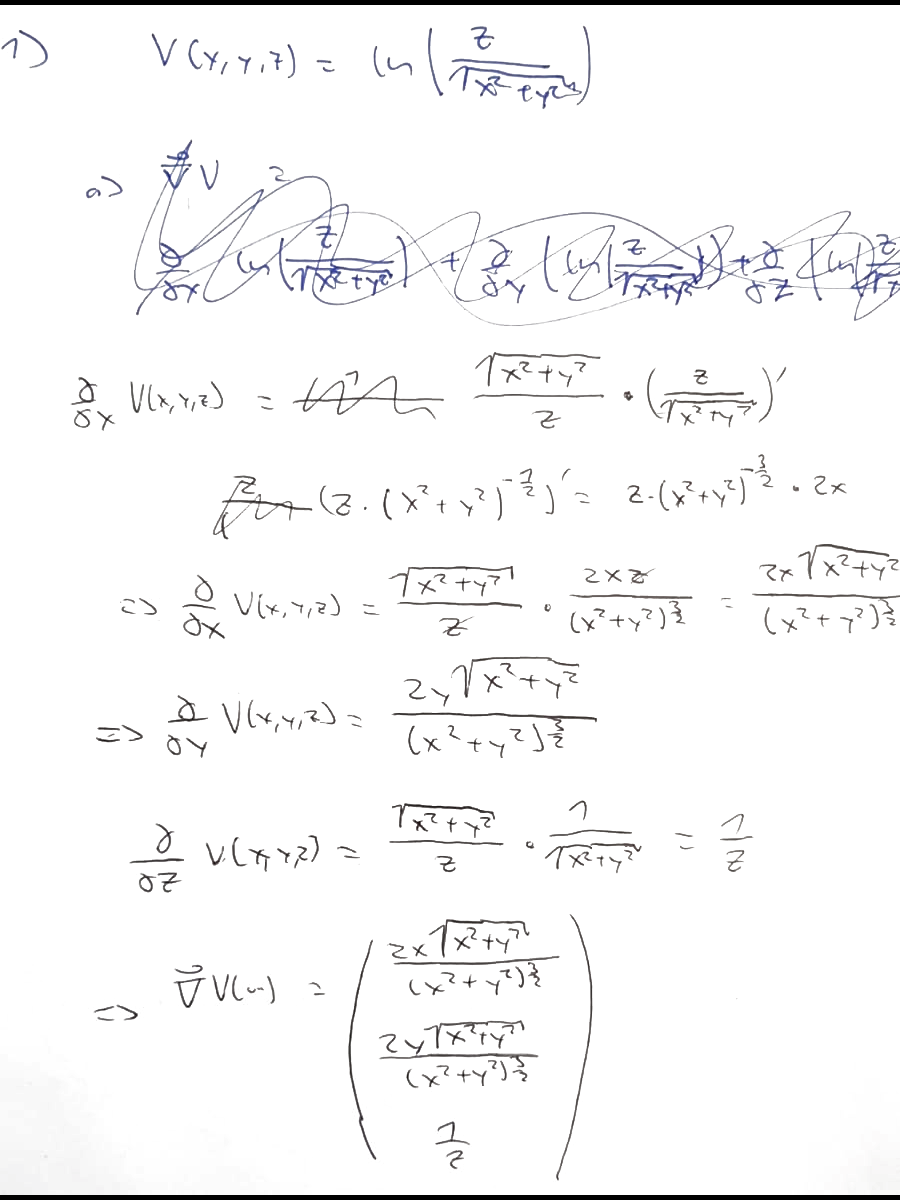 1) V(x,y,z) = ln(z/√(x²+y²))
a) ∇⃗V
∂/∂x ln(z/√(x²+y²)) + ∂/∂y (ln(z/√(x²+y²))) + ∂/∂z (ln(z/√x
∂/∂x V(x,y,z) = √(x²+y²)/z · (z/√(x²+y²))'
(z·(x²+y²)^(-1/2))' = z·(x²+y²)^(-3/2) · 2x
=> ∂/∂x V(x,y,z) = √(x²+y²)/z · 2xz/(x²+y²)^(3/2) = 2x√(x²+y²)/(x²+y²)^(3/2)
=> ∂/∂y V(x,y,z) = 2y√(x²+y²)/(x²+y²)^(3/2)
∂/∂z V(x,y,z) = √(x²+y²)/z · 1/√(x²+y²) = 1/z
=> ∇⃗V(…) = (2x√(x²+y²)/(x²+y²)^(3/2)
2y√(x²+y²)/(x²+y²)^(3/2)
1/z)